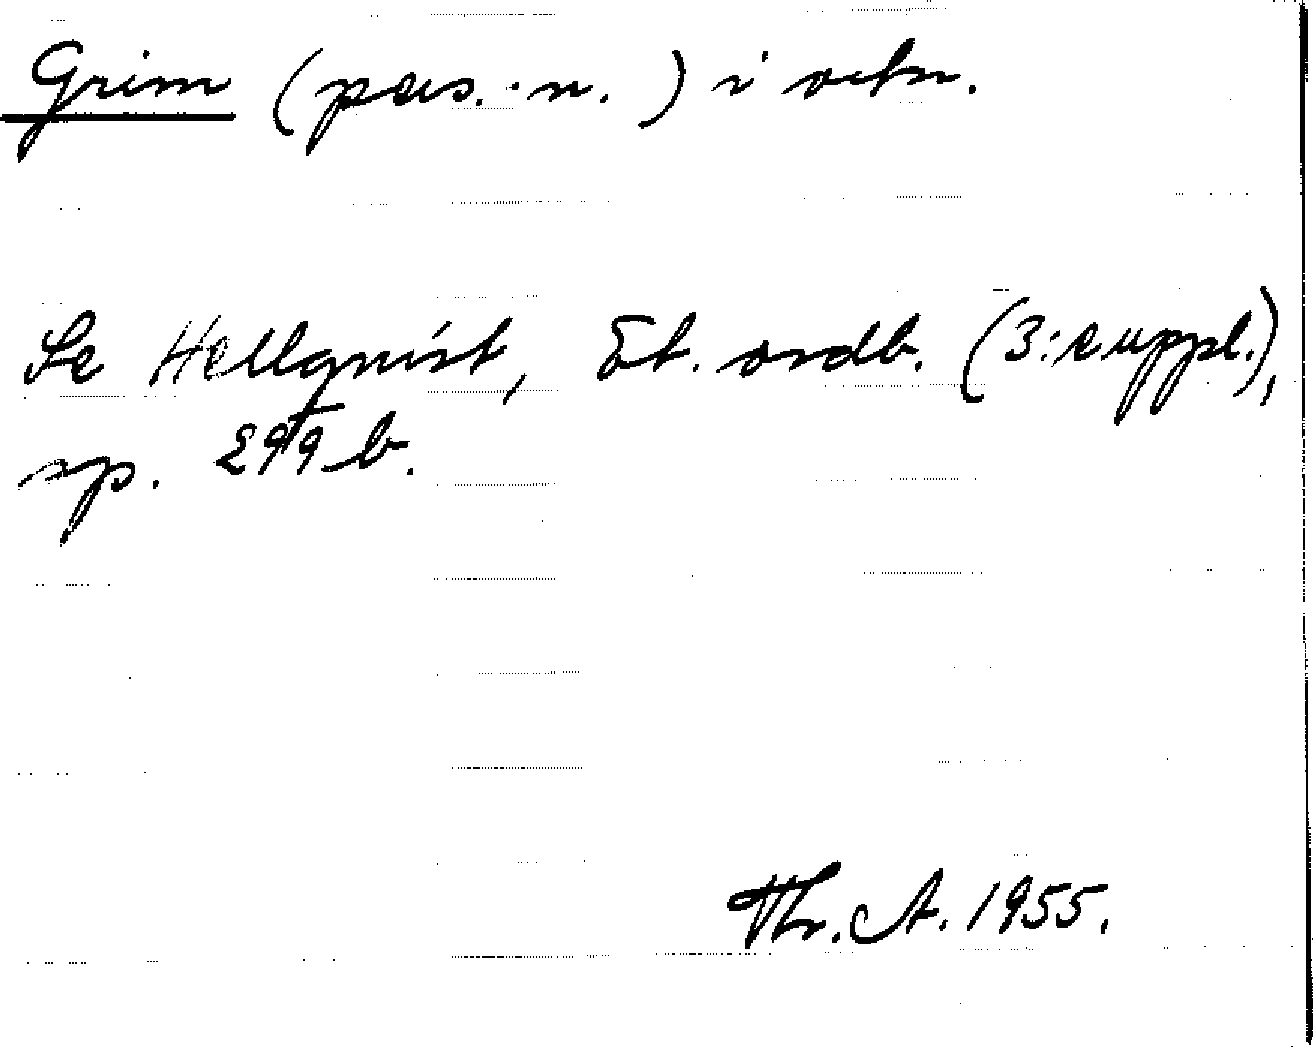 Grim (pers.-n.) i ortn.
Se Hellquist, Et. ordb. (3: e uppl.),
sp. 299 b.
Thr. A. 1955.